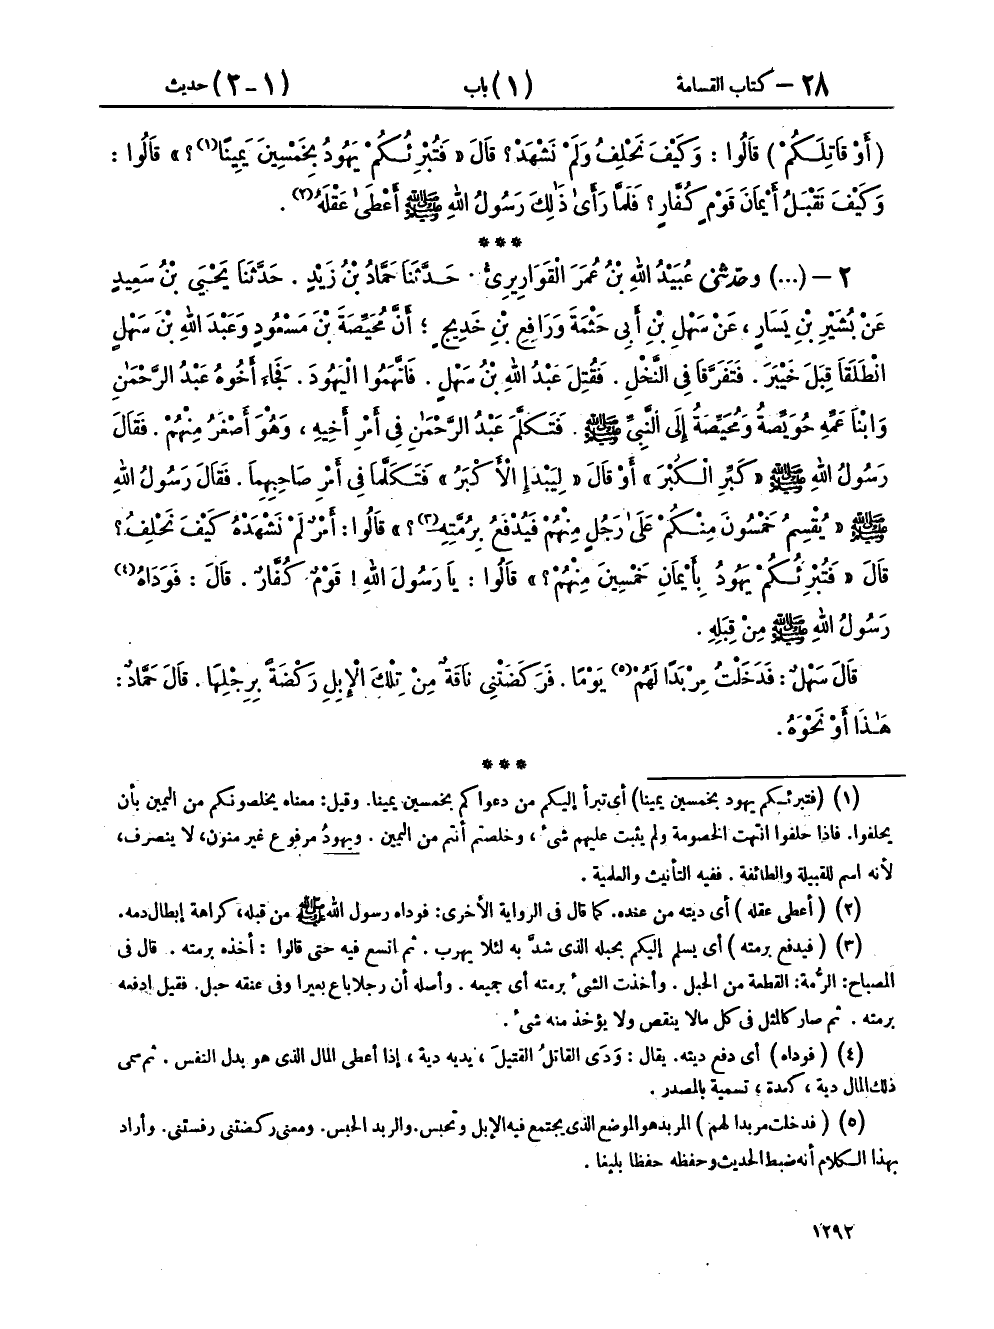 ٢٨ – كتاب القسامة (١) باب (١-٢) حديث
(أَوْ قَاتِلَكُمْ) قَالُوا: وَكَيْفَ نَحْلِفُ وَلَمْ نَشْهَدْ؟ قَالَ «فَتُبْرِئُكُمْ يَهُودُ بِخَمْسِينَ يَمِينًا(١)؟» قَالُوا:
وَكَيْفَ نَقْبَلُ أَيْمَانَ قَوْمٍ كُفَّارٍ؟ فَلَمَّا رَأَىٰ ذٰلِكَ رَسُولُ اللهِ ﷺ أَعْطَىٰ عَقْلَهُ(٢).
***
٢ – (...) وحدثني عُبَيْدُ اللهِ بْنُ عُمَرَ الْقَوَارِيرِىُّ. حَدَّثَنَا حَمَّادُ بْنُ زَيْدٍ. حَدَّثَنَا يَحْيَي بْنُ سَعِيدٍ
عَنْ بُشَيْرِ بْنِ يَسَارٍ، عَنْ سَهْلِ بْنِ أَبِي حَثْمَةَ وَرَافِعِ بْنِ خَدِيجٍ؛ أَنَّ مُحَيِّصَةَ بْنَ مَسْعُودٍ وَعَبْدَ اللهِ بْنَ سَهْلٍ
انْطَلَقَا قِبَلَ خَيْبَرَ. فَتَفَرَّقَا فِي النَّخْلِ. فَقُتِلَ عَبْدُ اللهِ بْنُ سَهْلٍ. فَاتَّهَمُوا الْيَهُودَ. فَجَاءَ أَخُوهُ عَبْدُ الرَّحْمَٰنِ
وَابْنَا عَمِّهِ حُوَيِّصَةُ وَمُحَيِّصَةُ إِلَى النَّبِيِّ ﷺ. فَتَكَلَّمَ عَبْدُ الرَّحْمَٰنِ فِي أَمْرِ أَخِيهِ، وَهُوَ أَصْغَرُ مِنْهُمْ. فَقَالَ
رَسُولُ اللهِ ﷺ «كَبِّرِ الْكُبْرَ» أَوْ قَالَ «لِيَبْدَإِ الْأَكْبَرُ» فَتَكَلَّمَا فِي أَمْرِ صَاحِبِهِمَا. فَقَالَ رَسُولُ اللهِ
ﷺ «يُقْسِمُ خَمْسُونَ مِنْكُمْ عَلَىٰ رَجُلٍ مِنْهُمْ فَيُدْفَعُ بِرُمَّتِهِ(٣)؟» قَالُوا: أَمْرٌ لَمْ نَشْهَدْهُ كَيْفَ نَحْلِفُ؟
قَالَ «فَتُبْرِئُكُمْ يَهُودُ بِأَيْمَانِ خَمْسِينَ مِنْهُمْ؟» قَالُوا: يَا رَسُولَ اللهِ! قَوْمٌ كُفَّارٌ. قَالَ: فَوَدَاهُ(٤)
رَسُولُ اللهِ ﷺ مِنْ قِبَلِهِ.
قَالَ سَهْلٌ: فَدَخَلْتُ مِرْبَدًا لَهُمْ(٥) يَوْمًا. فَرَكَضَتْنِي نَاقَةٌ مِنْ تِلْكَ الْإِبِلِ رَكْضَةً بِرِجْلِهَا. قَالَ حَمَّادٌ:
هَٰذَا أَوْ نَحْوَهُ.
***
(١) (فتبرئكم يهود بخمسين يمينا) أى تبرأ إليكم من دعواكم بخمسين يمينا. وقيل: معناه يخلصونكم من اليمين بأن
يحلفوا. فاذا حلفوا انتهت الخصومة ولم يثبت عليهم شىء، وخلصتم أنتم من اليمين. ويهودُ مرفوع غير منون، لا ينصرف،
لأنه اسم للقبيلة والطائفة. ففيه التأنيث والعلمية.
(٢) (أعطى عقله) أى ديته من عنده. كما قال فى الرواية الأخرى: فوداه رسول الله ﷺ من قبله، كراهة إبطال دمه.
(٣) (فيدفع برمته) أى يسلم إليكم بحبله الذى شدّ به لئلا يهرب. ثم اتسع فيه حتى قالوا: أخذه برمته. قال فى
المصباح: الرُّمة: القطعة من الحبل. وأخذت الشىء برمته أى جميعه. وأصله أن رجلا باع بعيرا وفى عنقه حبل. فقيل ادفعه
برمته. ثم صار كالمثل فى كل مالا ينقص ولا يؤخذ منه شىء.
(٤) (فوداه) أى دفع ديته. يقال: وَدَى القاتلُ القتيلَ، يديه دية، إذا أعطى المال الذى هو بدل النفس. ثم سمى
ذلك المال دية، كعدة، تسمية بالمصدر.
(٥) (فدخلت مربدا لهم) المربد هو الموضع الذى يجتمع فيه الإبل وتحبس. والربد الحبس. ومعنى ركضتنى رفستنى. وأراد
بهذا الكلام أنه ضبط الحديث وحفظه حفظا بليغا.
١٢٩٢